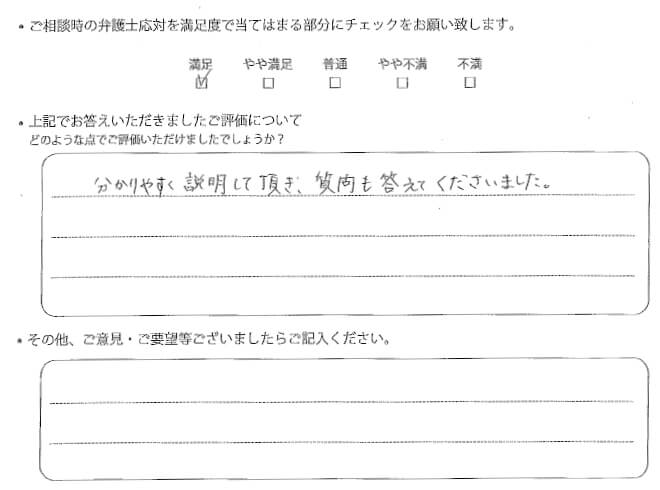 ・ご相談時の弁護士応対を満足度で当てはまる部分にチェックをお願い致します。
満足 やや満足 普通 やや不満 不満
☑ □ □ □ □
・上記でお答えいただきましたご評価について
どのような点でご評価いただけましたでしょうか？
分かりやすく説明して頂き、質問も答えてくださいました。
・その他、ご意見・ご要望等ございましたらご記入ください。